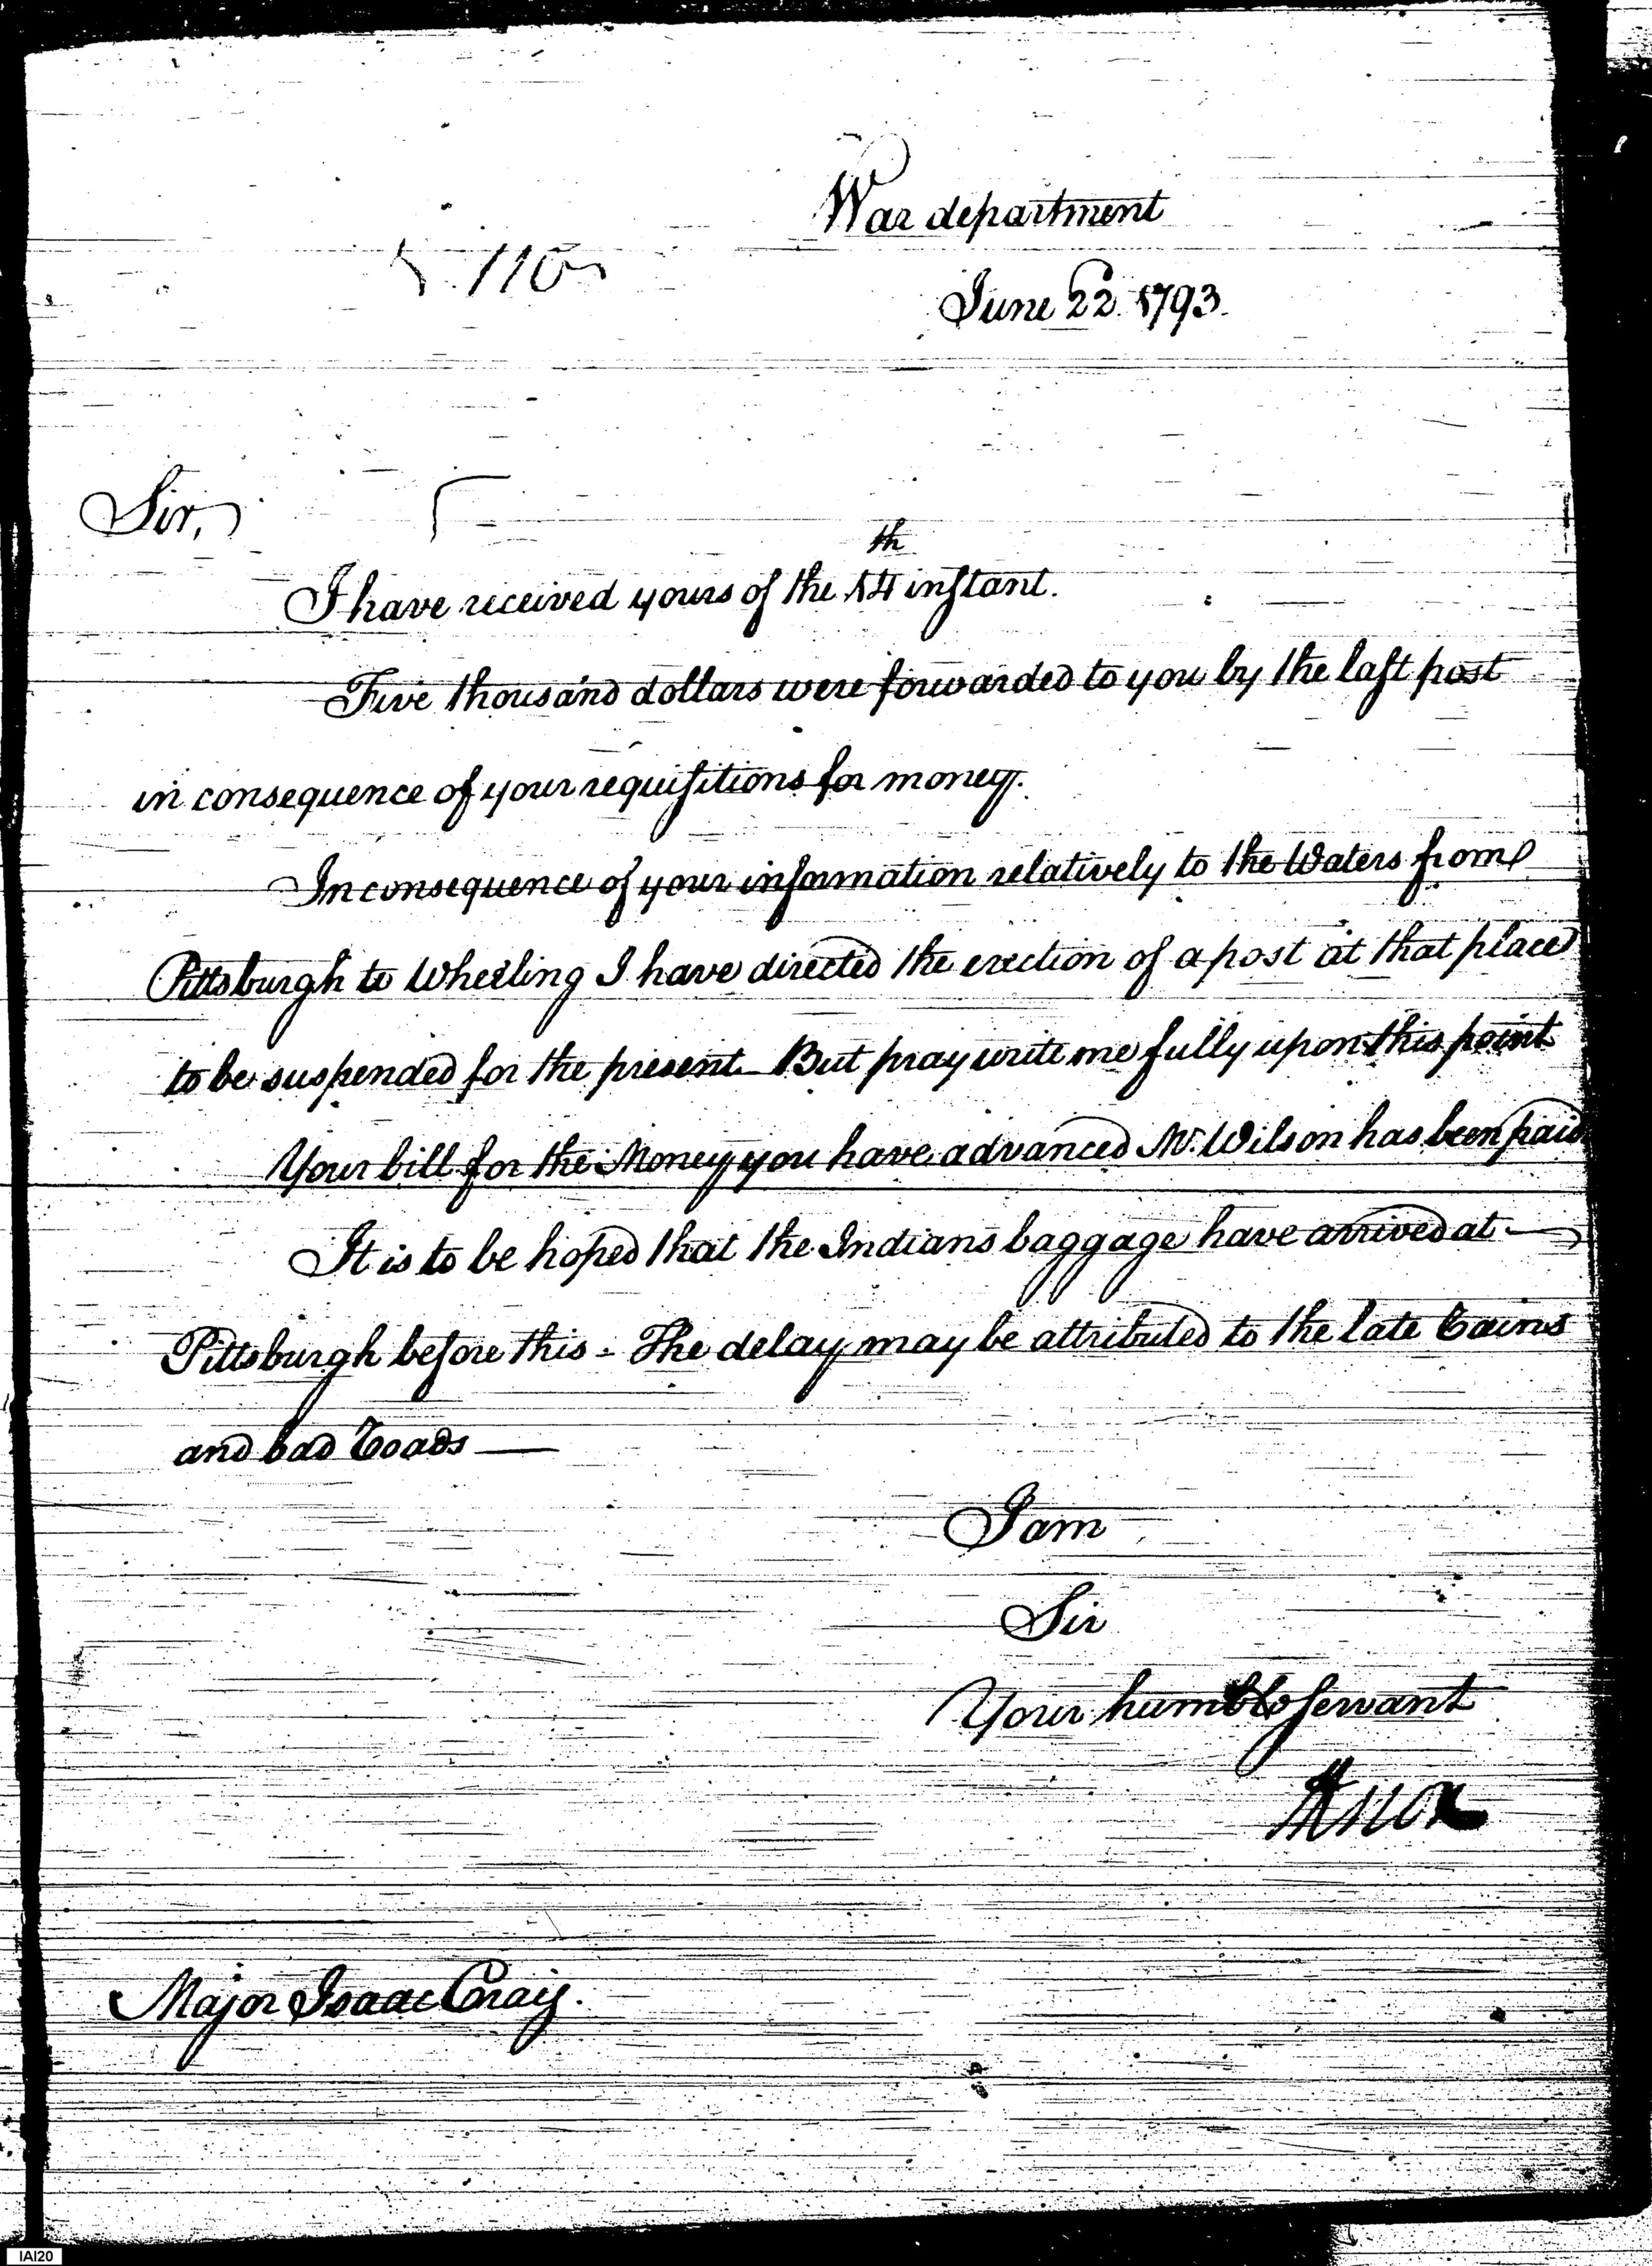 War department
110
June 22 1793.
Sir,
I have received yours of the 14th instant.
Five thousand dollars were forwarded to you by the last post
in consequence of your requisitions for money.
In consequence of your information relatively to the Waters from
Pittsburgh to Wheeling I have directed the erection of a post at that place
to be suspended for the present. But pray write me fully upon this point
Your bill for the Money you have advanced Mr. Wilson has been paid
It is to be hoped that the Indians baggage have arrived at
Pittsburgh before this - The delay may be attributed to the late rains
and bad roads —
I am
Sir
Your humble servant
HKnox
Major Isaac Craig.
IAI20